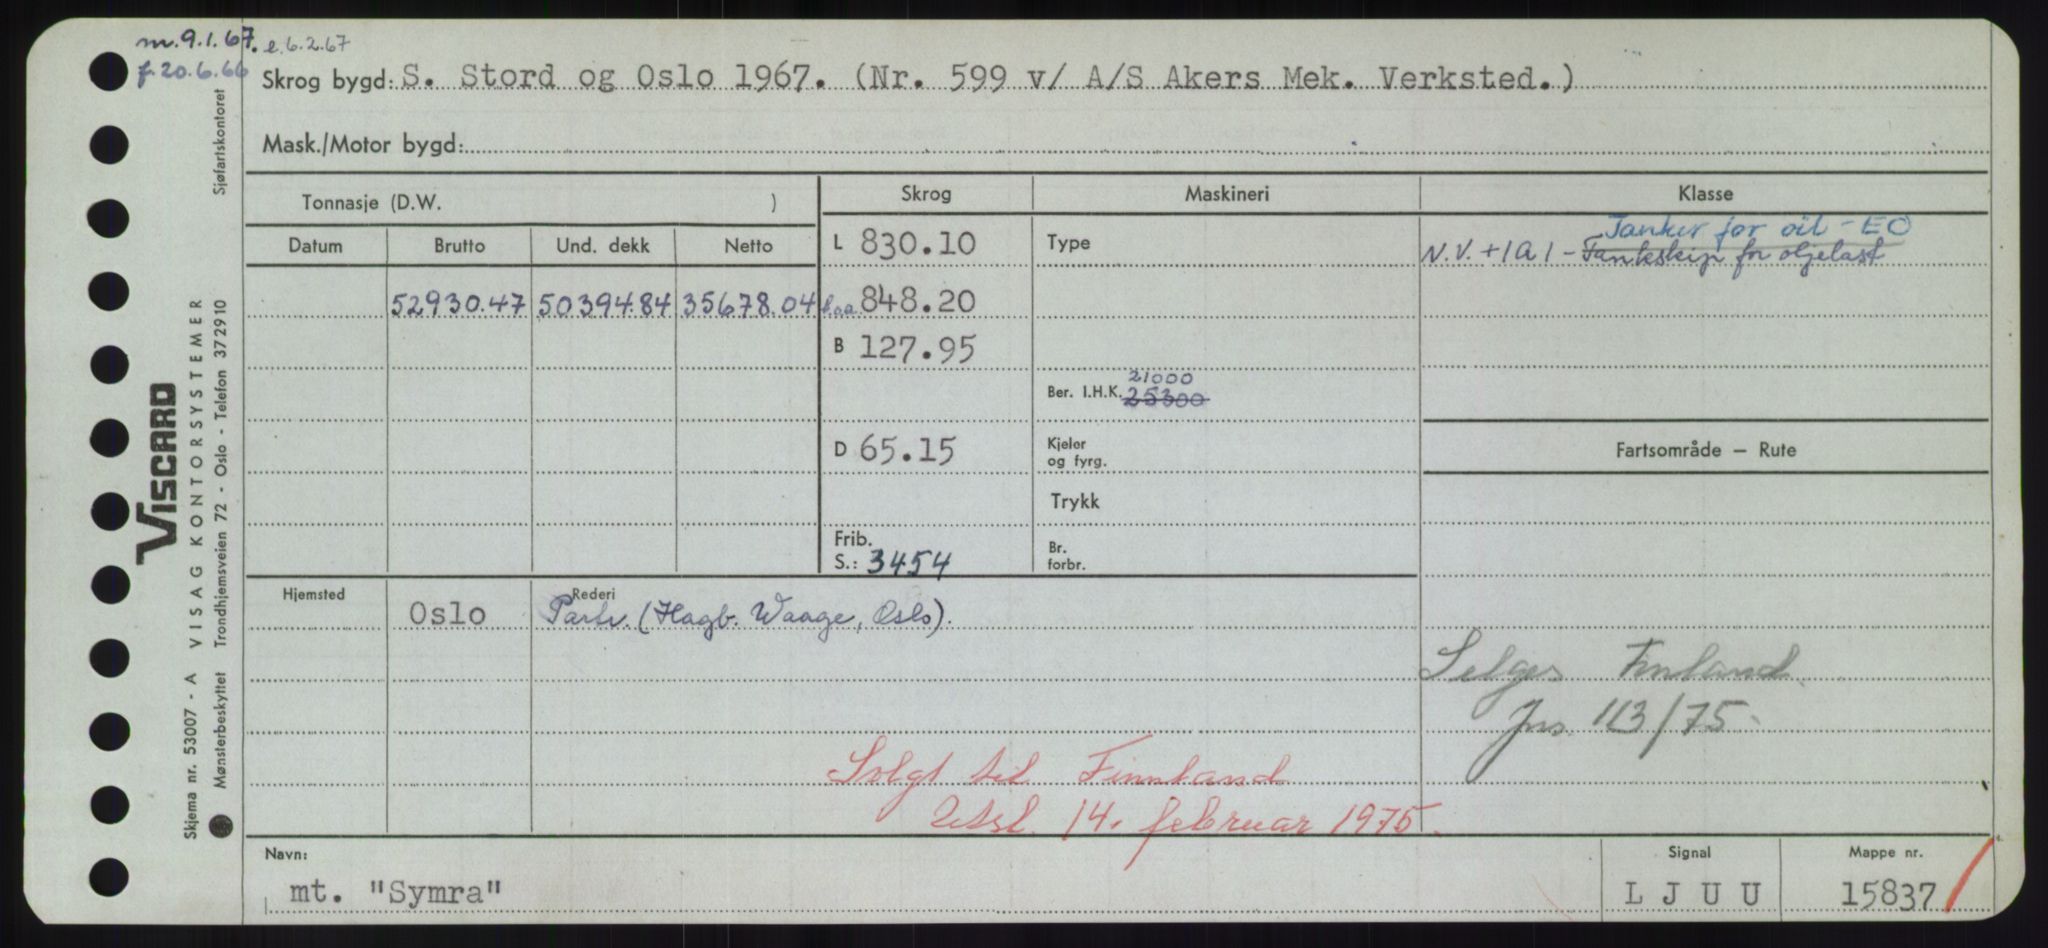 m. 9.1.67. e. 6.2.67
f. 20.6.66
Skrog bygd: S. Stord og Oslo 1967. (Nr. 599 v/ A/S Akers Mek. Verksted.)
Mask./Motor bygd:
Tonnasje (D.W. )
Skrog
Maskineri
Klasse
Datum Brutto Und. dekk Netto
L 830.10
Type
Tanker for oil - EO
N.V. +1A1 - Tankskip for oljelast
52930.47 50394.84 35678.04
l.o.a. 848.20
B 127.95
21000
Ber. I.H.K. 25300
D 65.15
Kjeler
og fyrg.
Fartsområde – Rute
Trykk
Frib.
S.: 3454
Br.
forbr.
Hjemsted
Rederi
Oslo Partr. (Hagb. Waage, Oslo).
Selges Finland
Jns. 113/75.
Solgt til Finnland
Utsl. 14. februar 1975.
Navn:
mt. "Symra"
Signal
L J U U
Mappe nr.
15837
Sjøfartskontoret
VISCARD
VISAG KONTORSYSTEMER
Trondhjemsveien 72 - Oslo - Telefon 372910
Skjema nr. 53007 - A
Mønsterbeskyttet